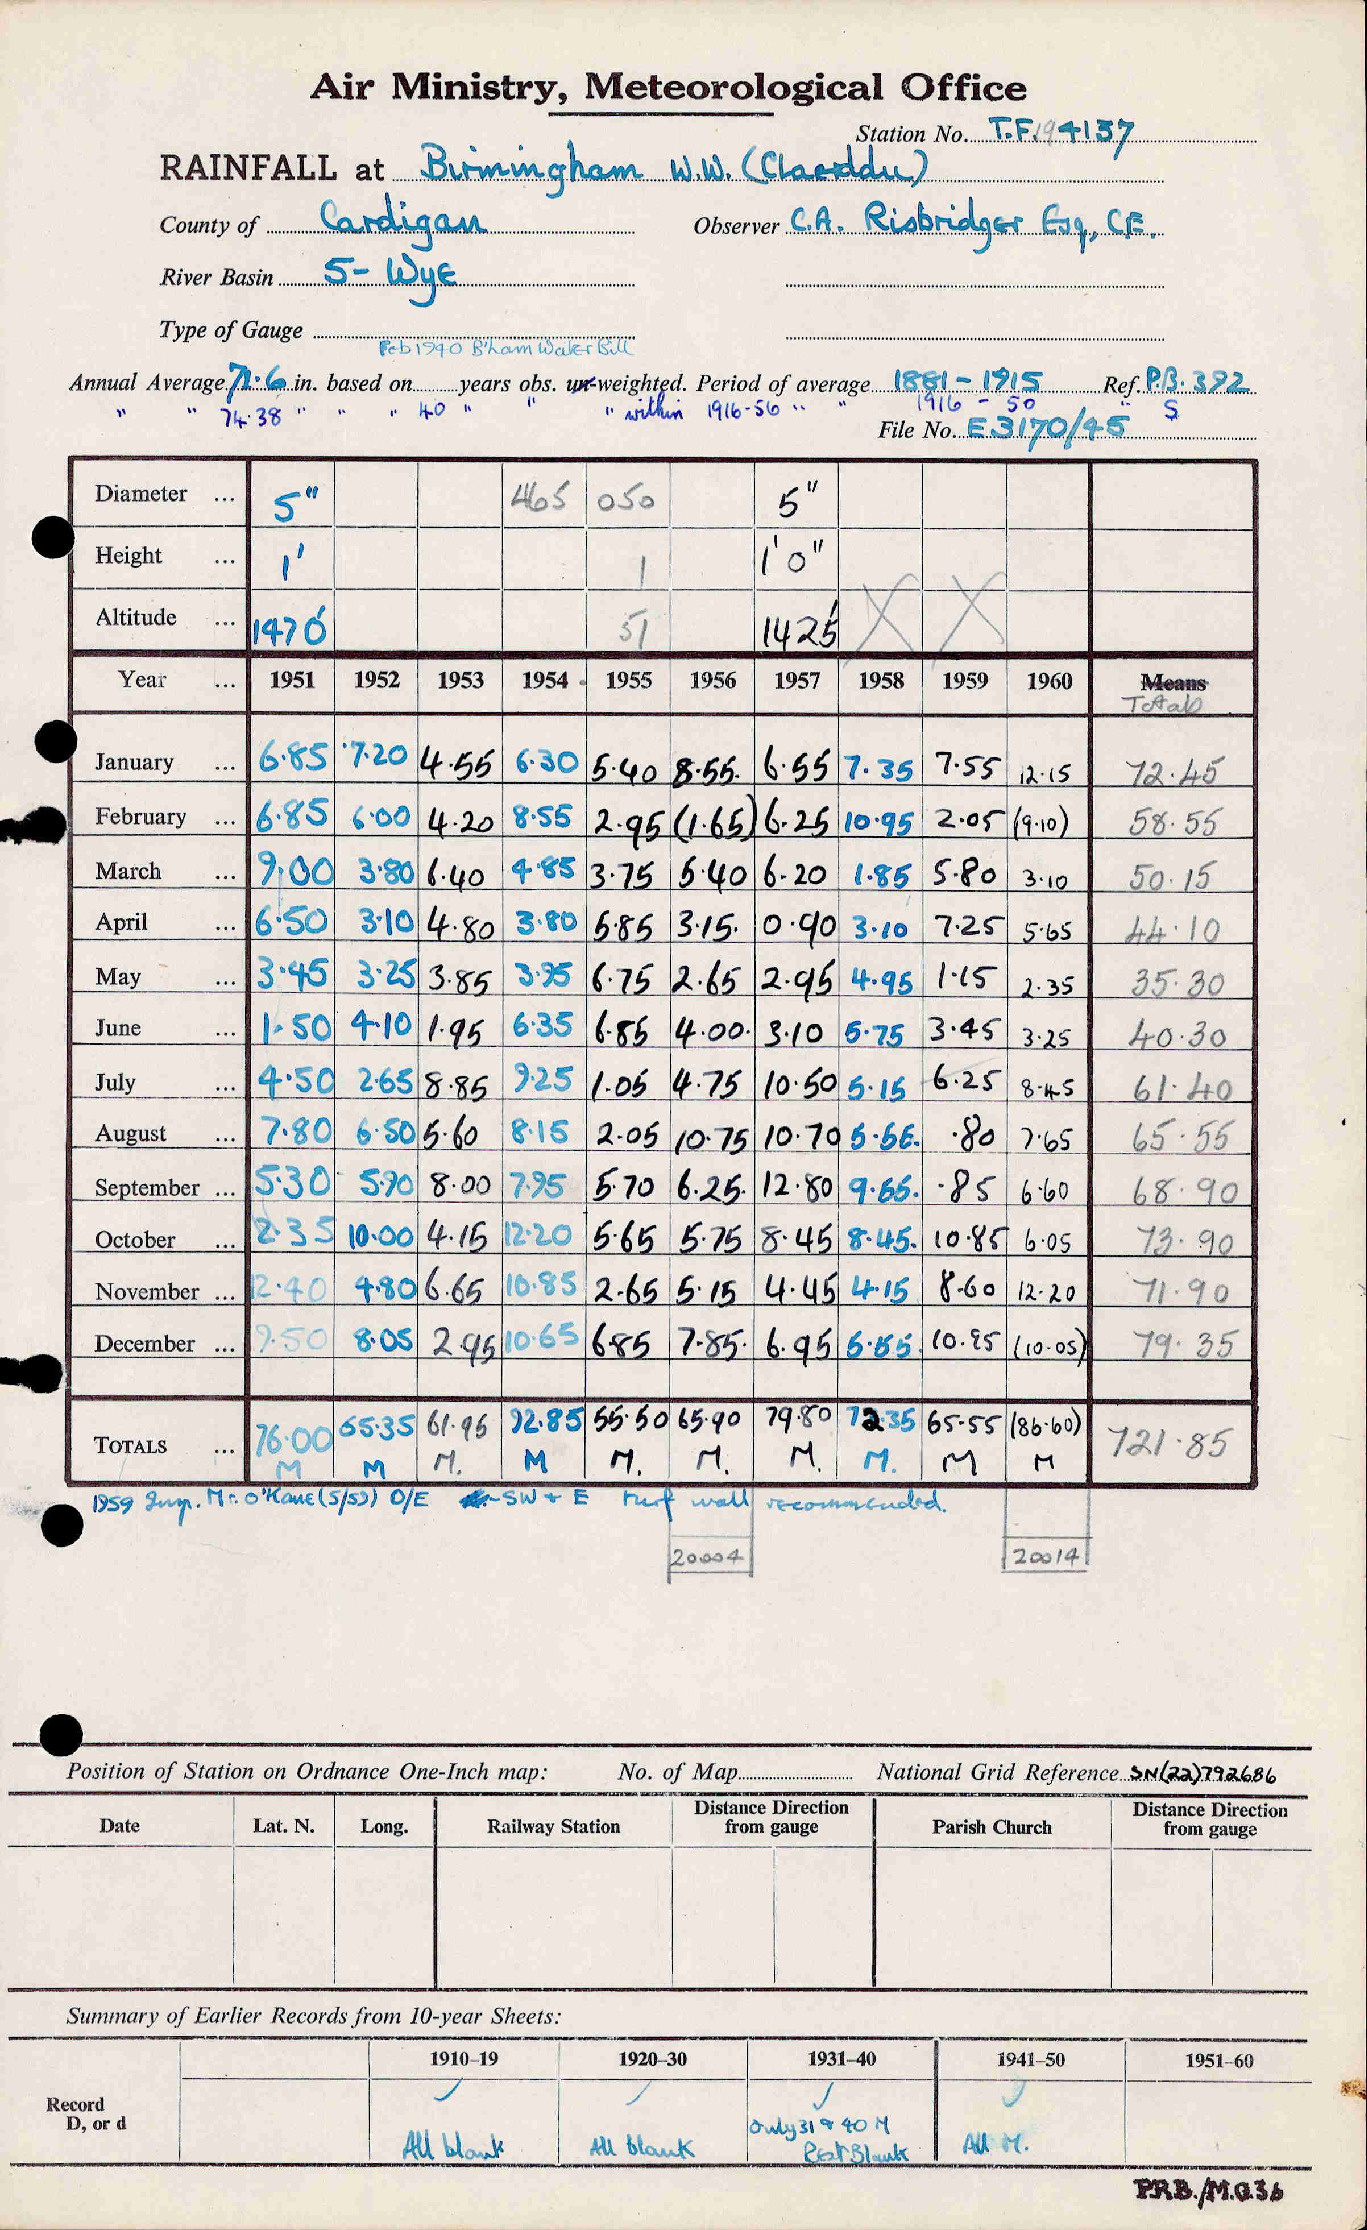 Air Ministry, Meteorological Office
Station No. T.F.194137
RAINFALL at Birmingham W.W. (Claerddu)
County of Cardigan Observer C.A. Risbridger Esq, C.E.
River Basin 5- Wye
Type of Gauge
Feb 1940 B'ham Water Bill
Annual Average 71.6 in. based on years obs. un-weighted. Period of average 1881-1915 Ref. P.B. 392
" " 74.38 " " " 40 " " " within 1916-56 " " 1916 - 50 " S
File No. E3170/45
Diameter ... 5" 465 050 5"
Height ... 1' 1 1'0"
Altitude ... 1470' 51 1425' X X
Year ... 1951 1952 1953 1954 1955 1956 1957 1958 1959 1960 Means
Totals
January ... 6.85 7.20 4.55 6.30 5.40 8.55. 6.55 7.35 7.55 12.15 72.45
February ... 6.85 6.00 4.20 8.55 2.95 (1.65) 6.25 10.95 2.05 (9.10) 58.55
March ... 9.00 3.80 6.40 4.85 3.75 5.40 6.20 1.85 5.80 3.10 50.15
April ... 6.50 3.10 4.80 3.80 5.85 3.15. 0.90 3.10 7.25 5.65 44.10
May ... 3.45 3.25 3.85 3.95 6.75 2.65 2.95 4.95 1.15 2.35 35.30
June ... 1.50 4.10 1.95 6.35 6.85 4.00. 3.10 5.75 3.45 3.25 40.30
July ... 4.50 2.65 8.85 9.25 1.05 4.75 10.50 5.15 6.25 8.45 61.40
August ... 7.80 6.50 5.60 8.15 2.05 10.75 10.70 5.55. .80 7.65 65.55
September ... 5.30 5.90 8.00 7.95 5.70 6.25. 12.80 9.55. .85 6.60 68.90
October ... 2.35 10.00 4.15 12.20 5.65 5.75 8.45 8.45. 10.85 6.05 73.90
November ... 12.40 4.80 6.65 10.85 2.65 5.15 4.45 4.15 8.60 12.20 71.90
December ... 9.50 8.05 2.95 10.65 6.85 7.85. 6.95 5.55 10.95 (10.05) 79.35
TOTALS ... 76.00 65.35 61.95 92.85 55.50 65.90 79.80 72.35 65.55 (86.60) 721.85
M M M. M M. M. M. M. M M
1959 Insp. Mr. O'Kane (5/59) O/E SW + E turf wall recommended.
20004 20014
Position of Station on Ordnance One-Inch map: No. of Map National Grid Reference SN(22)792686
Date Lat. N. Long. Railway Station Distance Direction from gauge Parish Church Distance Direction from gauge
Summary of Earlier Records from 10-year Sheets:
1910-19 1920-30 1931-40 1941-50 1951-60
Record D, or d
All blank All blank Only 31 & 40 M Rest Blank All M.
P.R.B./M.O.36